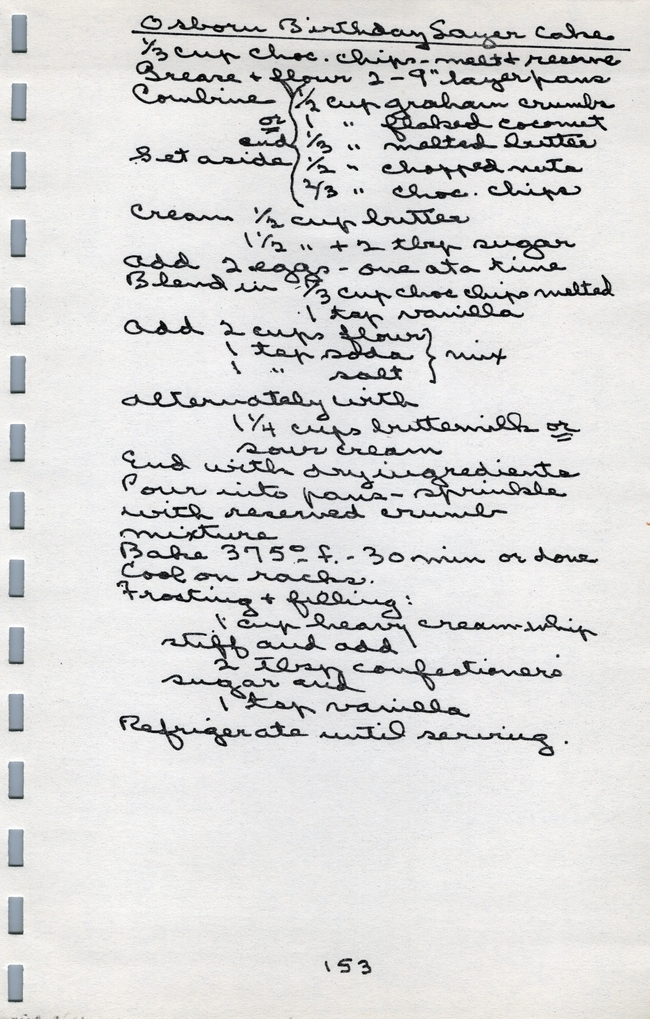 Osborn Birthday Layer Cake
1/3 cup choc. chips - melt + reserve
Grease + flour 2 - 9" layer pans
Combine 1/2 cup graham crumbs
or 1 " flaked coconut
and 1/3 " melted butter
Set aside 1/2 " chopped nuts
2/3 " choc. chips
Cream 1/2 cup butter
1 1/2 " + 2 tbsp sugar
Add 2 eggs - one at a time
Blend in 1/3 cup choc chips melted
1 tsp vanilla
Add 2 cups flour
1 tsp soda } mix
1 " salt
alternately with
1 1/4 cups buttermilk or
sour cream
End with dry ingredients
Pour into pans - sprinkle
with reserved crumb
mixture
Bake 375° f. - 30 min or done
Cool on racks.
Frosting + filling:
1 cup heavy cream - whip
stiff and add
2 Tbsp confectioners
sugar and
1 tsp vanilla
Refrigerate until serving.
153